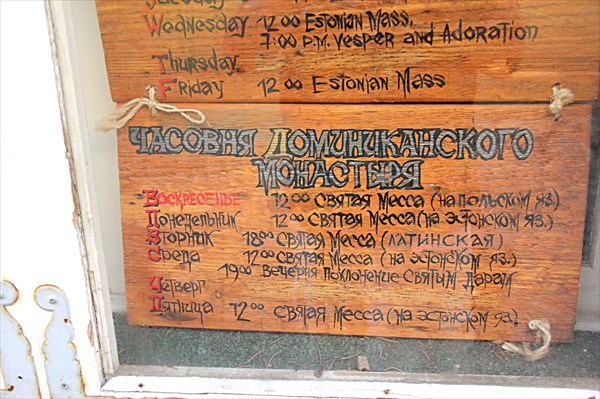 Wednesday 12 00 Estonian Mass,
7:00 P.M. Vesper and Adoration
Thursday
Friday 12 00 Estonian Mass
Часовня Доминиканского
Монастыря
Воскресенье 12 00 Святая Месса (на польском яз.)
Понедельник 12 00 Святая Месса (на эстонском яз.)
Вторник 18 00 Святая Месса (латинская)
Среда 12 00 Святая Месса (на эстонском яз.)
19 00 Вечерня поклонение Святым Дарам
Четверг
Пятница 12 00 Святая Месса (на эстонском яз.)